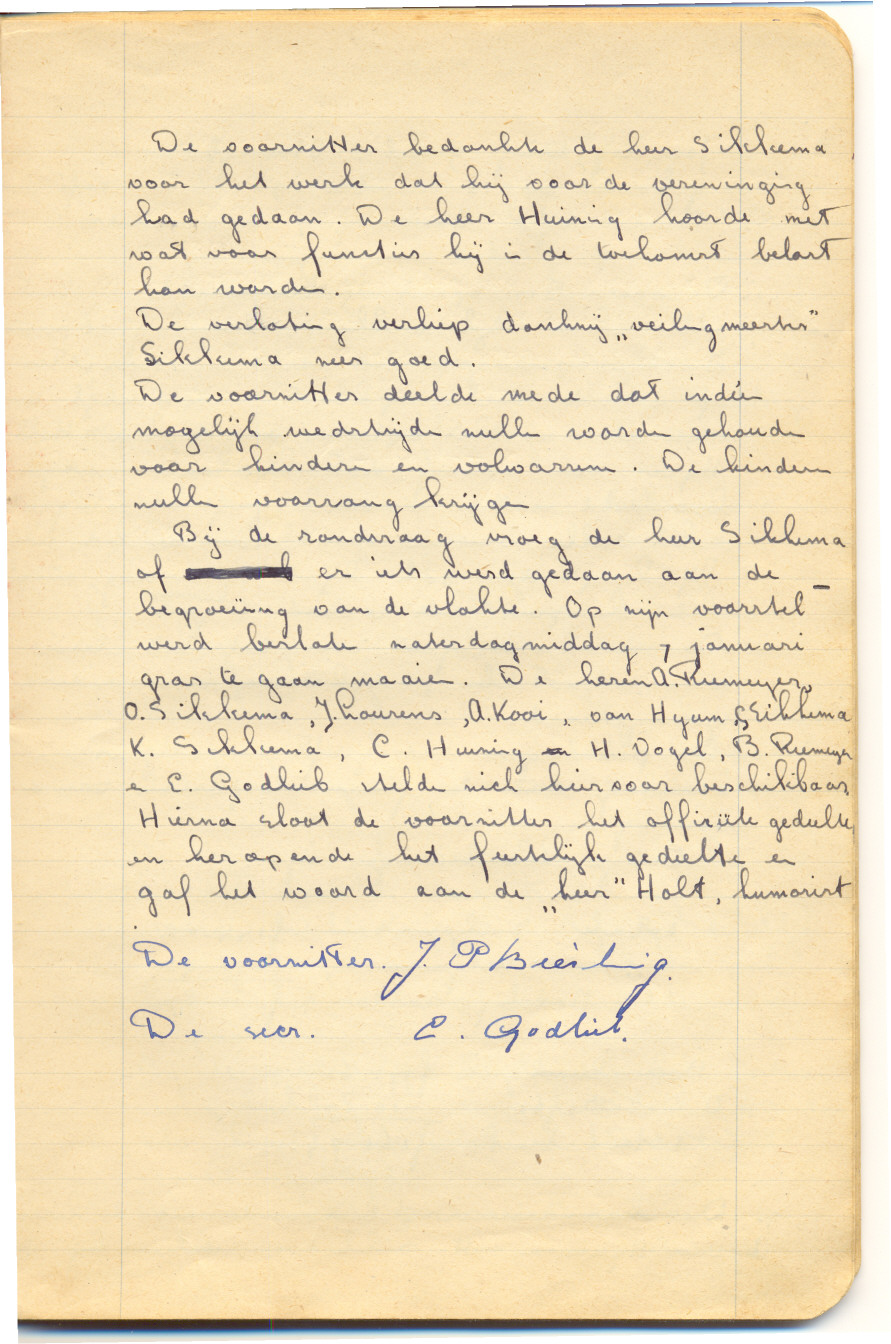 De voorzitter bedankte de heer Sikkema
voor het werk dat hij voor de vereninging
had gedaan. De heer Huizing hoorde met
wat voor functies hij in de toekomst belast
kon worden.
De verloting verliep dankzij „veilingmeester”
Sikkema zeer goed.
De voorzitter deelde mede dat indien
mogelijk wedstrijden zullen worden gehouden
voor kinderen en volwassenen. De kinderen
zullen voorrang krijgen
Bij de rondvraag vroeg de heer Sikkema
of er iets werd gedaan aan de
begroeiing van de vlakte. Op mijn voorstel
werd besloten zaterdagmiddag 7 januari
gras te gaan maaien. De heren A. Riemeyer,
O. Sikkema, J. Lourens, A. Kooi, van Hyum, S. Sikkema
K. Sikkema, C. Huizing en H. Vogel, B. Riemeyer
en E. Godlieb stelden zich hiervoor beschikbaar.
Hierna sloot de voorzitter het officiële gedeelte,
en heropende het feestelijk gedeelte en
gaf het woord aan de „heer” Holt, humorist
De voorzitter. J. P Biesling.
De secr. E. Godlieb.